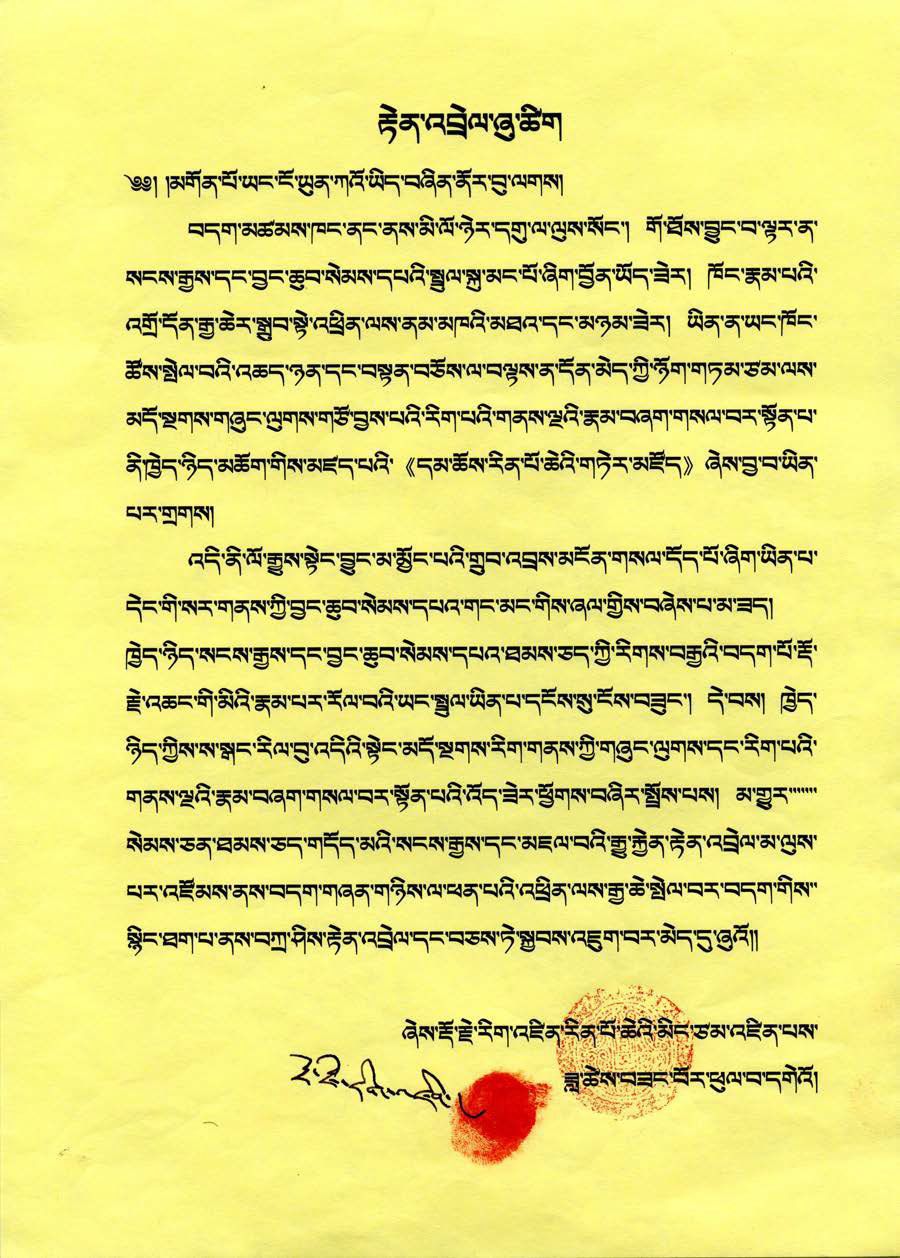 རྟེན་འབྲེལ་ཞུ་ཚིག
༄༅། །མགོན་པོ་ཡང་ངོ་ཡུན་ཀའོ་ཡིད་བཞིན་ནོར་བུ་ལགས།
བདག་མཚམས་ཁང་ནང་ནས་མི་ལོ་ཉེར་དགུ་ལ་ལུས་སོང་། གོ་ཐོས་བྱུང་བ་ལྟར་ན་
སངས་རྒྱས་དང་བྱང་ཆུབ་སེམས་དཔའི་སྤྲུལ་སྐུ་མང་པོ་ཞིག་བྱོན་ཡོད་ཟེར། ཁོང་རྣམ་པའི་
འགྲོ་དོན་རྒྱ་ཆེར་སྒྲུབ་སྟེ་འཕྲིན་ལས་ནམ་མཁའི་མཐའ་དང་མཉམ་ཟེར། ཡིན་ན་ཡང་ཁོང་
ཚོས་སྤེལ་བའི་འཆད་ཉན་དང་བསྟན་བཅོས་ལ་བལྟས་ན་དོན་མེད་ཀྱི་ཉོག་གཏམ་ཙམ་ལས་
མདོ་སྔགས་གཞུང་ལུགས་གཙོ་བྱས་པའི་རིག་པའི་གནས་ལྔའི་རྣམ་བཞག་གསལ་བར་སྟོན་པ་
ནི་ཁྱེད་ཉིད་མཆོག་གིས་མཛད་པའི་《དམ་ཆོས་རིན་པོ་ཆེའི་གཏེར་མཛོད》ཞེས་བྱ་བ་ཡིན་
པར་གྲགས།
འདི་ནི་ལོ་རྒྱུས་སྟེང་བྱུང་མ་མྱོང་པའི་གྲུབ་འབྲས་མངོན་གསལ་དོད་པོ་ཞིག་ཡིན་པ་
དེང་གི་སར་གནས་ཀྱི་བྱང་ཆུབ་སེམས་དཔའ་གང་མང་གིས་ཞལ་གྱིས་བཞེས་པ་མ་ཟད།
ཁྱེད་ཉིད་སངས་རྒྱས་དང་བྱང་ཆུབ་སེམས་དཔའ་ཐམས་ཅད་ཀྱི་རིགས་བརྒྱའི་བདག་པོ་རྡོ་
རྗེ་འཆང་གི་མིའི་རྣམ་པར་རོལ་བའི་ཡང་སྤྲུལ་ཡིན་པ་དངོས་སུ་ངོས་བཟུང་། དེ་བས། ཁྱེད་
ཉིད་ཀྱིས་ས་སྒང་རིལ་བུ་འདིའི་སྟེང་མདོ་སྔགས་རིག་གནས་ཀྱི་གཞུང་ལུགས་དང་རིག་པའི་
གནས་ལྔའི་རྣམ་བཞག་གསལ་བར་སྟོན་པའི་འོད་ཟེར་ཕྱོགས་བཞིར་སྤྲོས་པས། མ་གྱུར་་་་་་་
སེམས་ཅན་ཐམས་ཅད་གདོད་མའི་སངས་རྒྱས་དང་མཇལ་བའི་རྒྱུ་རྐྱེན་རྟེན་འབྲེལ་མ་ལུས་
པར་འཛོམས་ནས་བདག་གཞན་གཉིས་ལ་ཕན་པའི་འཕྲིན་ལས་རྒྱ་ཆེ་སྤེལ་བར་བདག་གིས་་
སྙིང་ཐག་པ་ནས་བཀྲ་ཤིས་རྟེན་འབྲེལ་དང་བཅས་ཏེ་སྐྱབས་འཇུག་བར་མེད་དུ་ཞུའོ།།
ཞེས་རྡོ་རྗེ་རིག་འཛིན་རིན་པོ་ཆེའི་མིང་ཙམ་འཛིན་པས་
ཟླ་ཚེས་བཟང་པོར་ཕུལ་བ་དགེའོ།